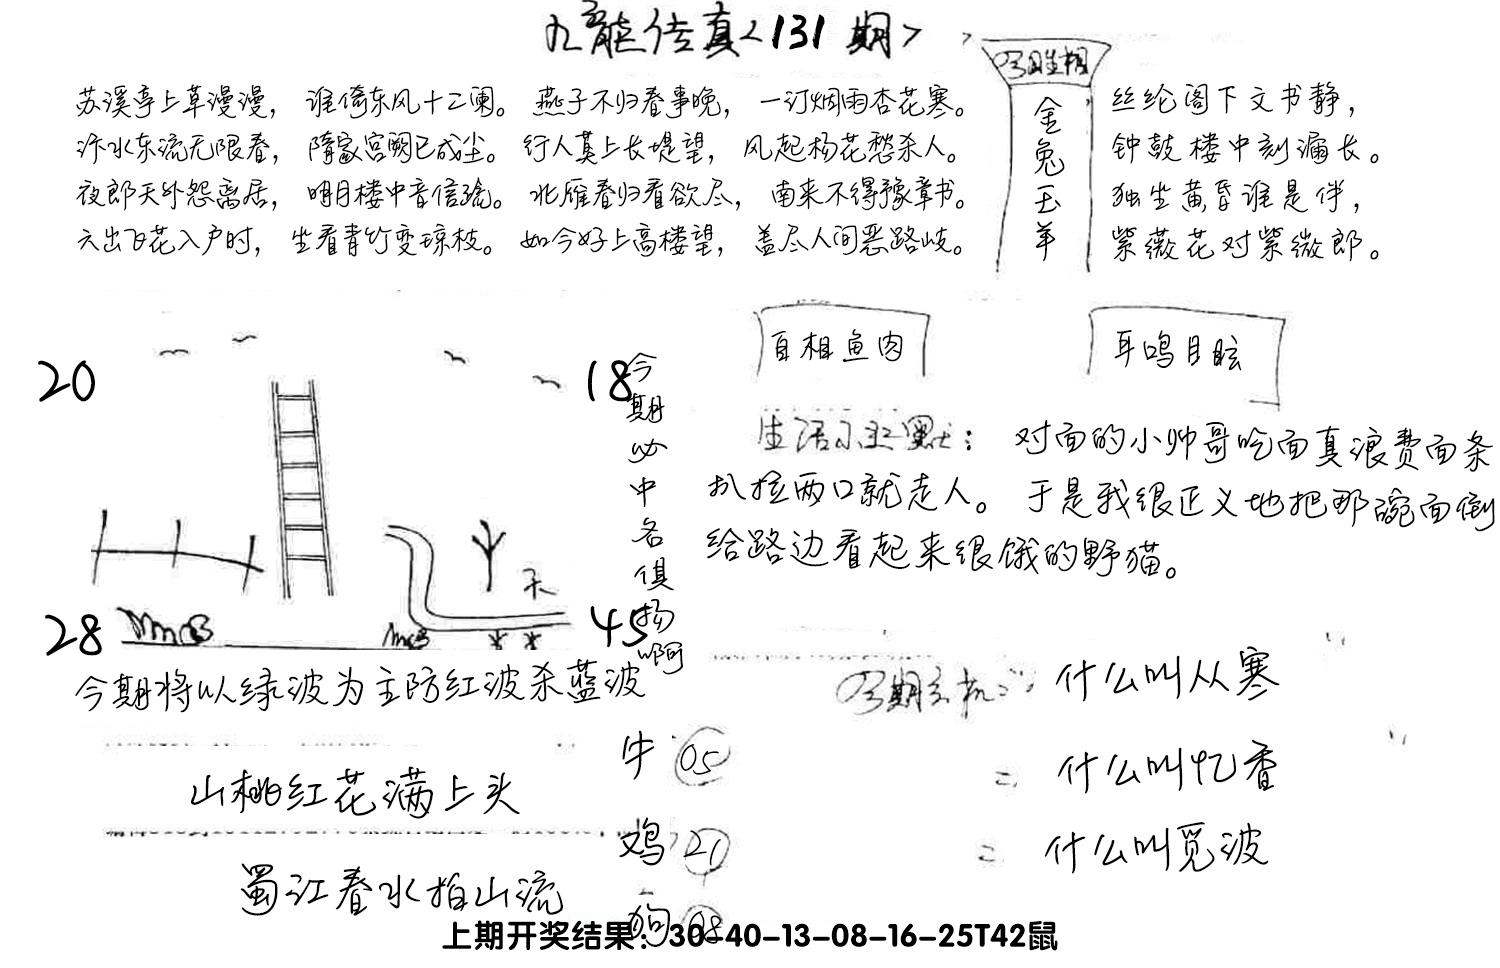 九龙传真<131期>
苏溪亭上草漫漫，谁倚东风十二阑。燕子不归春事晚，一汀烟雨杏花寒。
汴水东流无限春，隋家宫阙已成尘。行人莫上长堤望，风起杨花愁杀人。
夜郎天外怨离居，明月楼中音信疏。北雁春归看欲尽，南来不得豫章书。
六出飞花入户时，坐看青竹变琼枝。如今好上高楼望，盖尽人间恶路岐。
今日生相
金兔玉羊
丝纶阁下文书静，
钟鼓楼中刻漏长。
独坐黄昏谁是伴，
紫薇花对紫微郎。
20
18
28
45
今期必中名俱扬啊
今期将以绿波为主防红波杀蓝波
自相鱼肉
耳鸣目眩
生活小幽默：对面的小帅哥吃面真浪费面条
扒拉两口就走人。于是我很正义地把那碗面倒
给路边看起来很饿的野猫。
今期玄机：什么叫从寒
二、什么叫忆香
三、什么叫觅波
山桃红花满上头
蜀江春水拍山流
牛 05
鸡 21
狗 08
上期开奖结果：30-40-13-08-16-25T42鼠